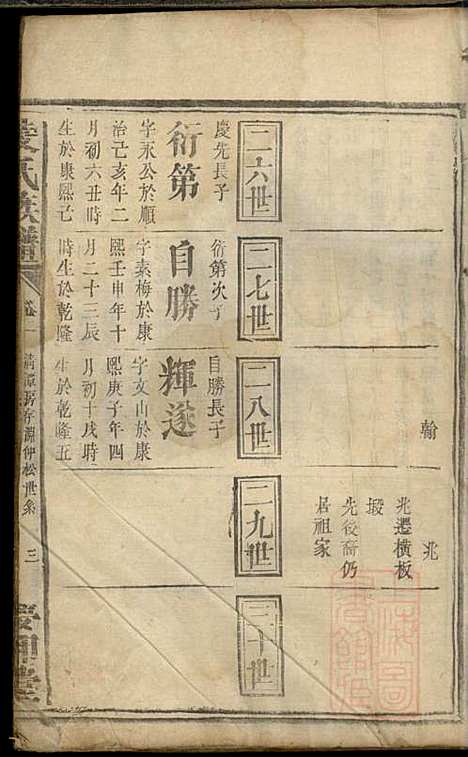 翰
兆
兆遷橫板
塅
先後裔仍
居祖家
二六世
二七世
二八世
二九世
三十世
慶先長子
衍第
字永公於順
治己亥年二
月初六丑時
生於康熙己
衍第次子
自勝
字素梅於康
熙壬申年十
月二十三辰
時生於乾隆
自勝長子
輝遂
字文山於康
熙庚子年四
月初十戌時
生於乾隆五
氏族譜
卷二
清潭房存淵仲松世系
三